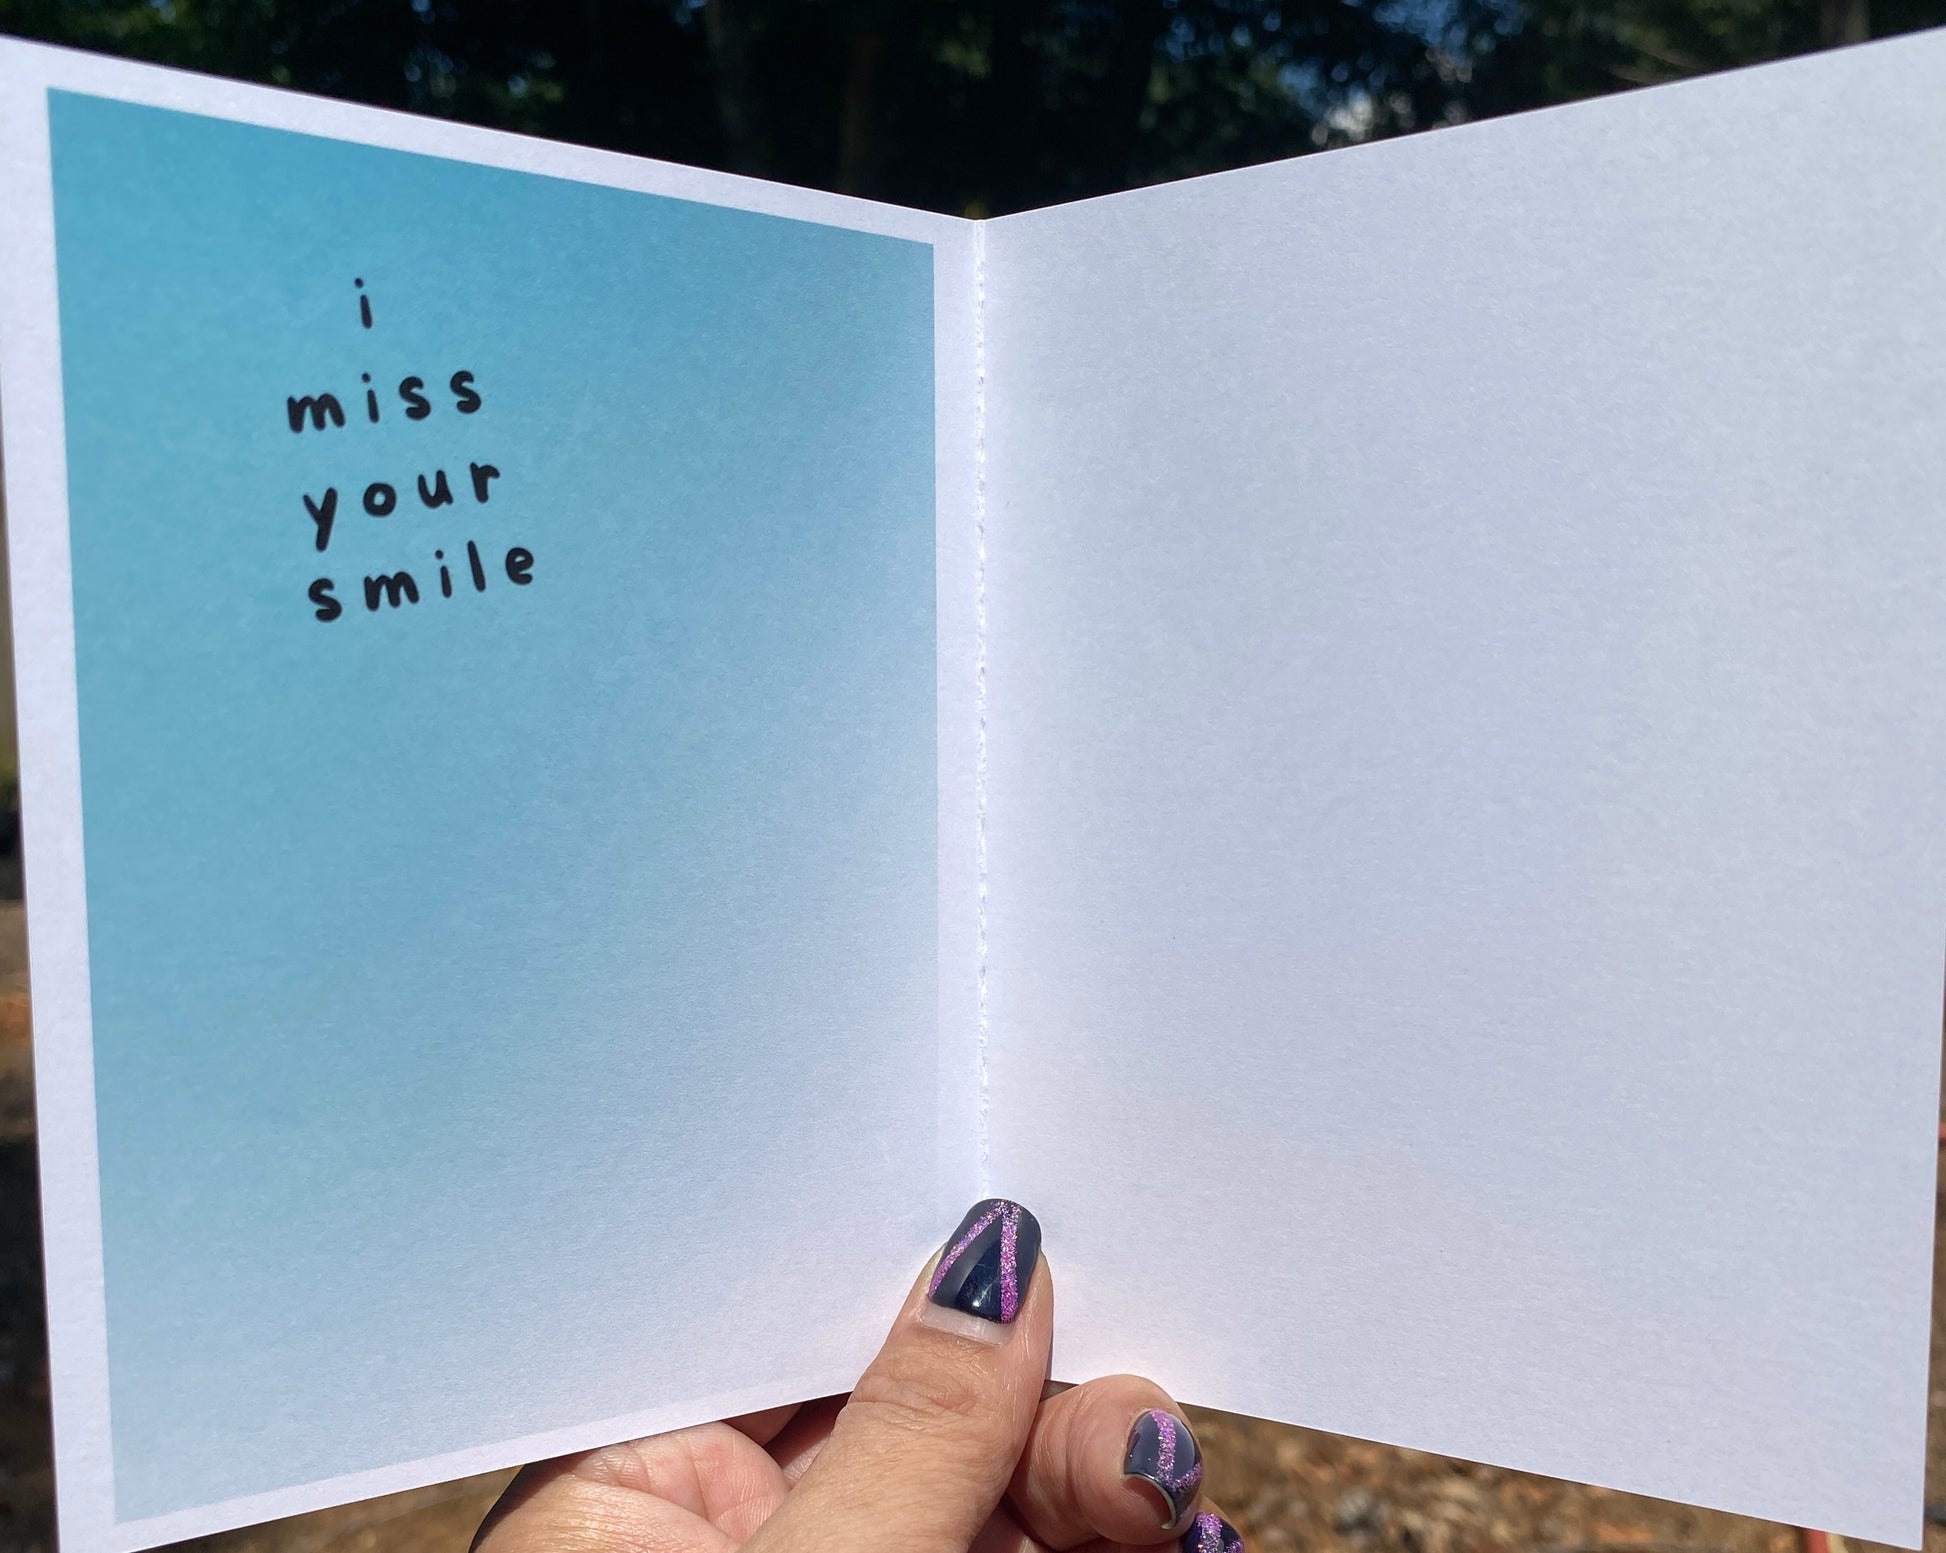 i
miss
your
smile